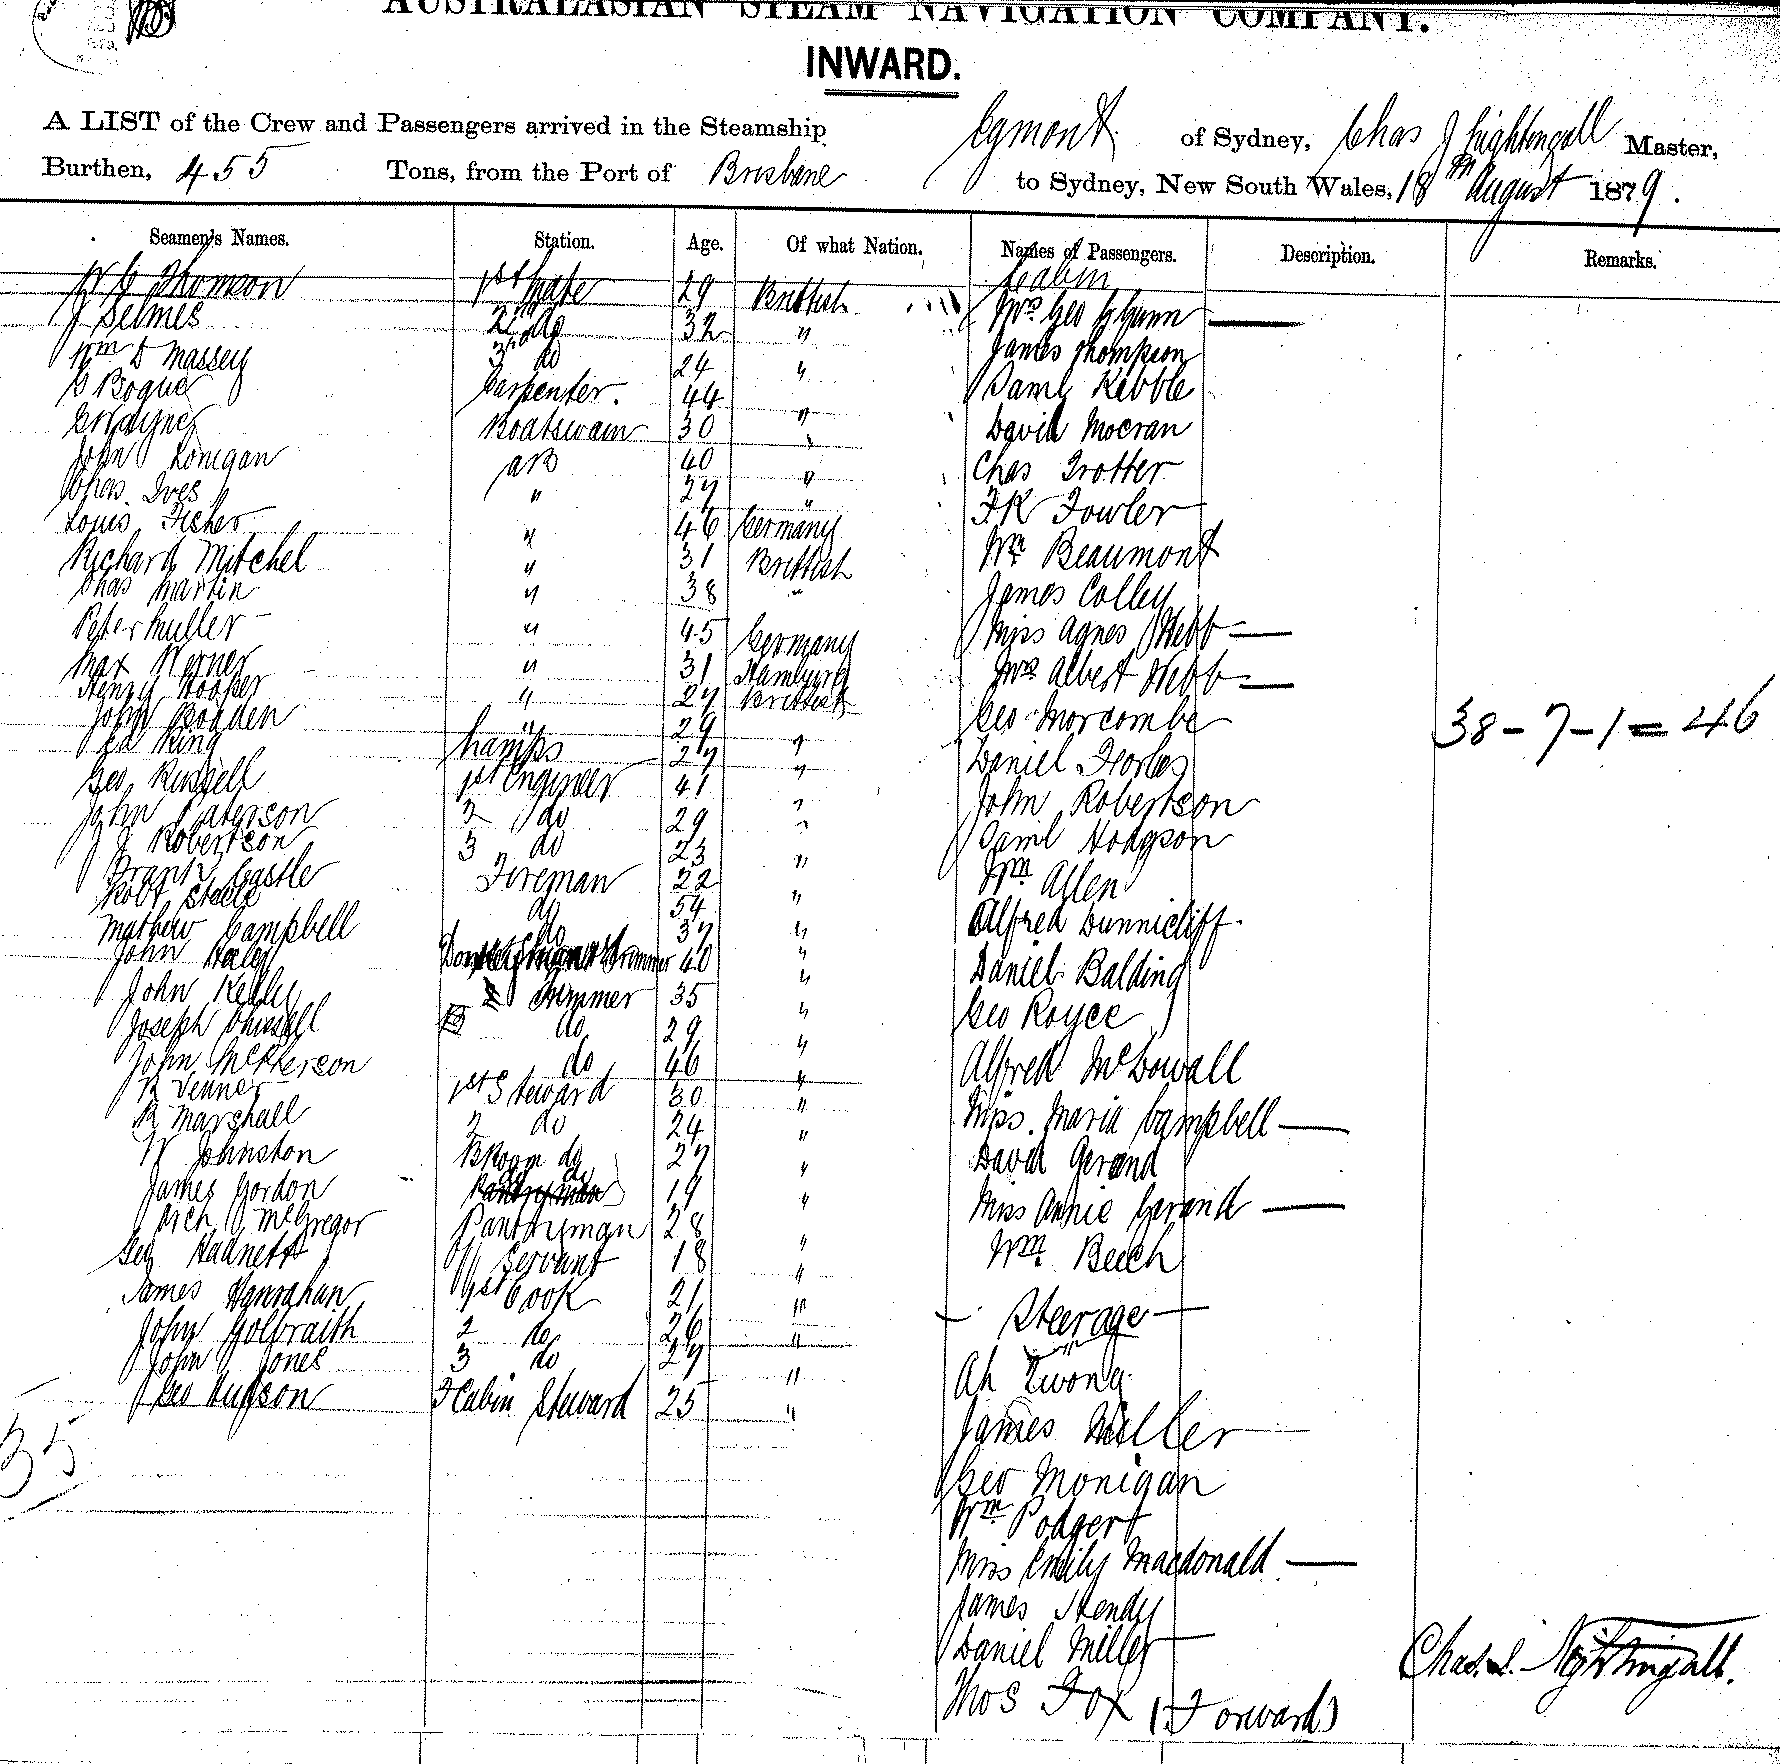 AUSTRALASIAN STEAM NAVIGATION COMPANY.
INWARD.
A LIST of the Crew and Passengers arrived in the Steamship Egmont of Sydney, Chas J Nightingall Master,
Burthen, 455 Tons, from the Port of Brisbane to Sydney, New South Wales, 18th August 1879.
Seamen's Names. Station. Age. Of what Nation. Names of Passengers. Description. Remarks.
W G Thomson 1st Mate 29 Brittish
J Selmes 2nd do 32 "
Wm D Massey 3rd do 24 "
G Bogue Carpenter. 44 "
Boatswain 30 "
John Lonigan AB 40 "
Chas. Ives " 27 "
Louis Fisher " 46 Germany
Richard Mitchel " 31 Brittish
Chas Martin " 38 "
Peter Muller " 45 Germany
Max Werner " 31 Hamburg
Henry Hooper " 27 Brittish
John Bogden " 29 "
Ed King Lamps 27 "
Geo Russell 1st Engineer 41 "
John Paterson 2 do 29 "
J Robertson 3 do 23 "
Frank Castle Fireman 22 "
Robt Steele do 54 "
Mathew Campbell do 37 "
John Haley Trimmer 40 "
John Kelly Trimmer 35 "
Joseph do 29 "
John McPherson do 46 "
R Venner 1st Steward 30 "
R Marshall 2 do 24 "
W Johnston BRoom do 27 "
James Gordon do 19 "
Arch McGregor Pantryman 28 "
Geo Hadnett Servant 18 "
James Hanrahan 1st Cook 21 "
John Golbraith 2 do 26 "
John Jones 3 do 27 "
Geo Hudson F Cabin Steward 25 "
35
Cabin
Mrs Geo Glynn
James Thompson
Saml Kebble
David Mocran
Chas Trotter
F R Fowler
Wm Beaumont
James Colley
Miss Agnes Webb
Mrs Albert Webb
Geo Morcombe
Daniel Forbes
John Robertson
Saml Hodgson
Wm Allen
Alfred Dunnicliff
Daniel Balding
Geo Royce
Alfred McDowall
Miss. Maria Campbell
David Gerand
Miss Annie Gerand
Wm Beech
Steerage
Ah Kwong
James Miller
Geo Monigan
Wm Podgert
Miss Emily Macdonald
James Hendy
Daniel Miller
Thos Fox (Forward)
38 - 7 - 1 = 46
Chas. J. Nightingall.